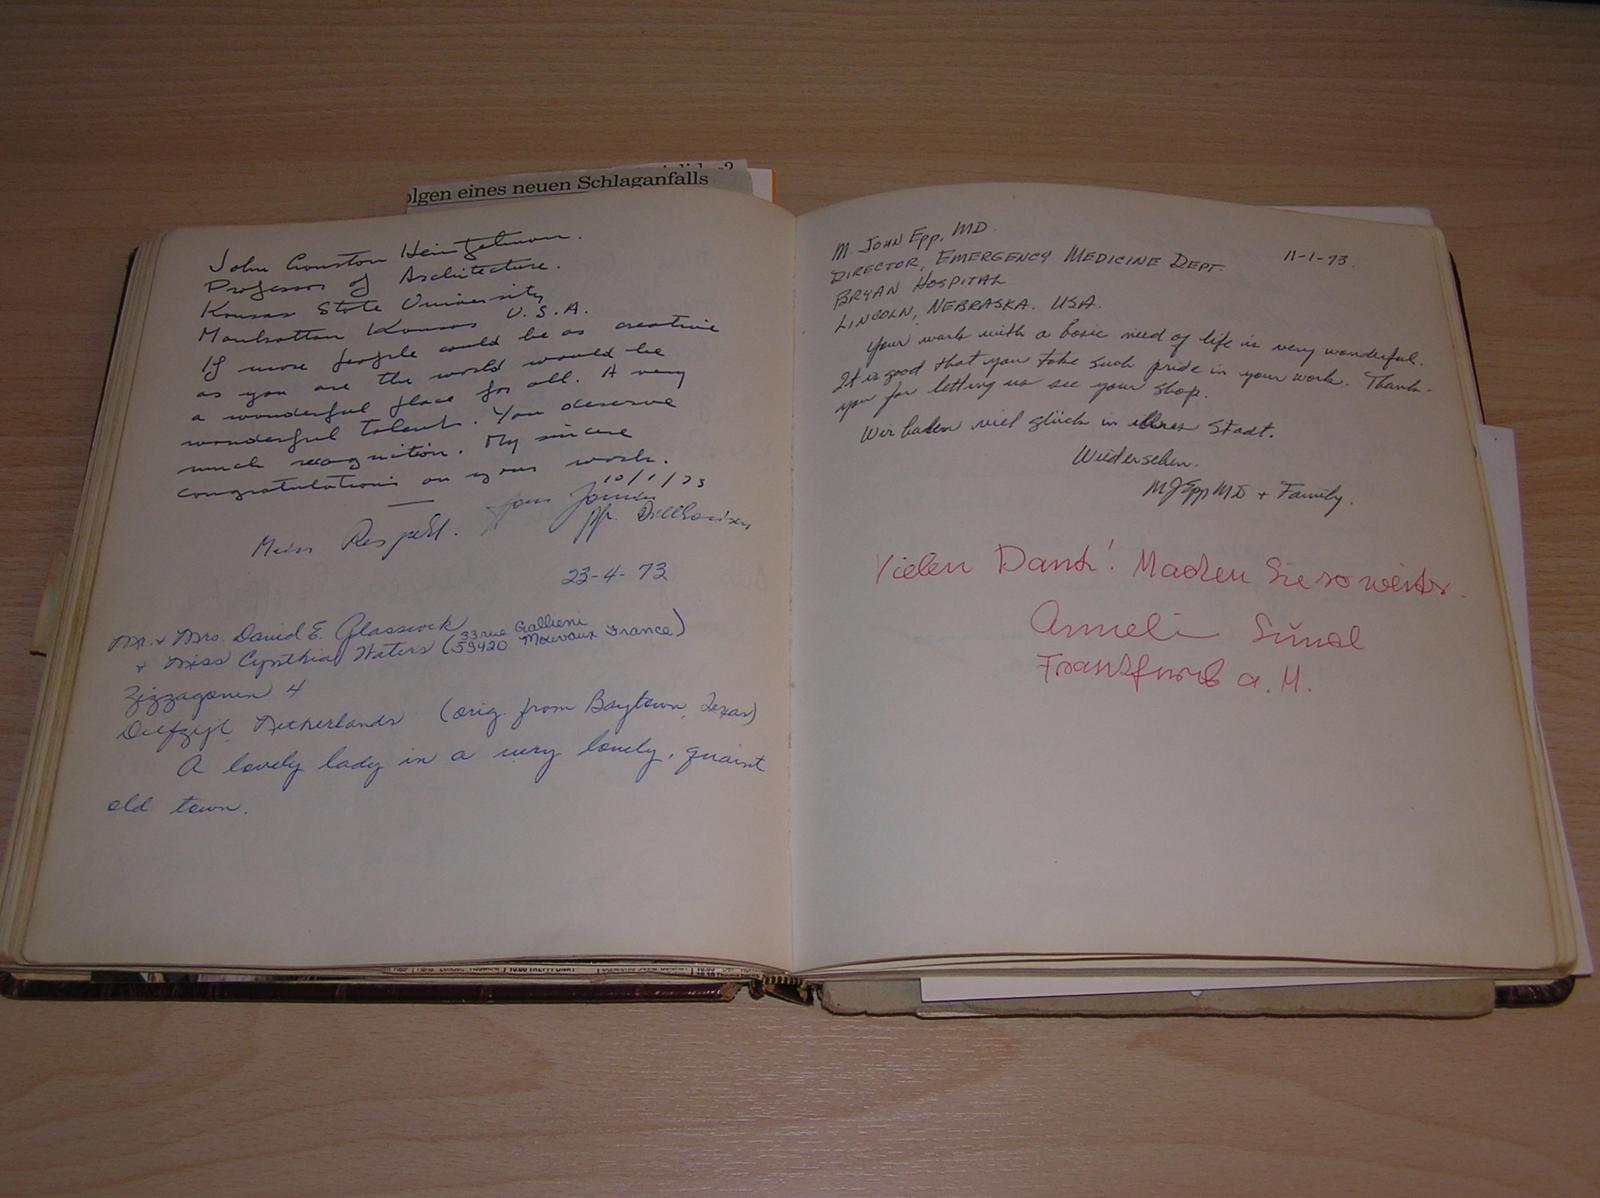 olgen eines neuen Schlaganfalls
John Cranston Heintzelman.
Professor of Architecture.
Kansas State University
Manhattan Kansas U.S.A.
If more people could be as creative
as you are the world would be
a wonderful place for all. A very
wonderful talent. You deserve
much recognition. My sincere
congratulations on your work.
10/1/73
Mein Respekt.
23-4-73
Mr. + Mrs. David E. Glasscock
+ Miss Cynthia Waters (33 rue Gallieni
59420 Mouvaux France)
Zijlvest 4
Delfzijl, Netherlands (orig. from Baytown, Texas)
A lovely lady in a very lovely, quaint
old town.
M. John Epp, MD
Director, Emergency Medicine Dept. 11-1-73.
Bryan Hospital
Lincoln, Nebraska. USA.
Your work with a basic need of life is very wonderful.
It is good that you take such pride in your work. Thank-
you for letting us see your shop.
Wir haben viel glück in Stadt.
Wiedersehen.
MJEpp MD + Family.
Vielen Dank! Machen Sie so weiter.
Anneli
Frankfurt a. M.